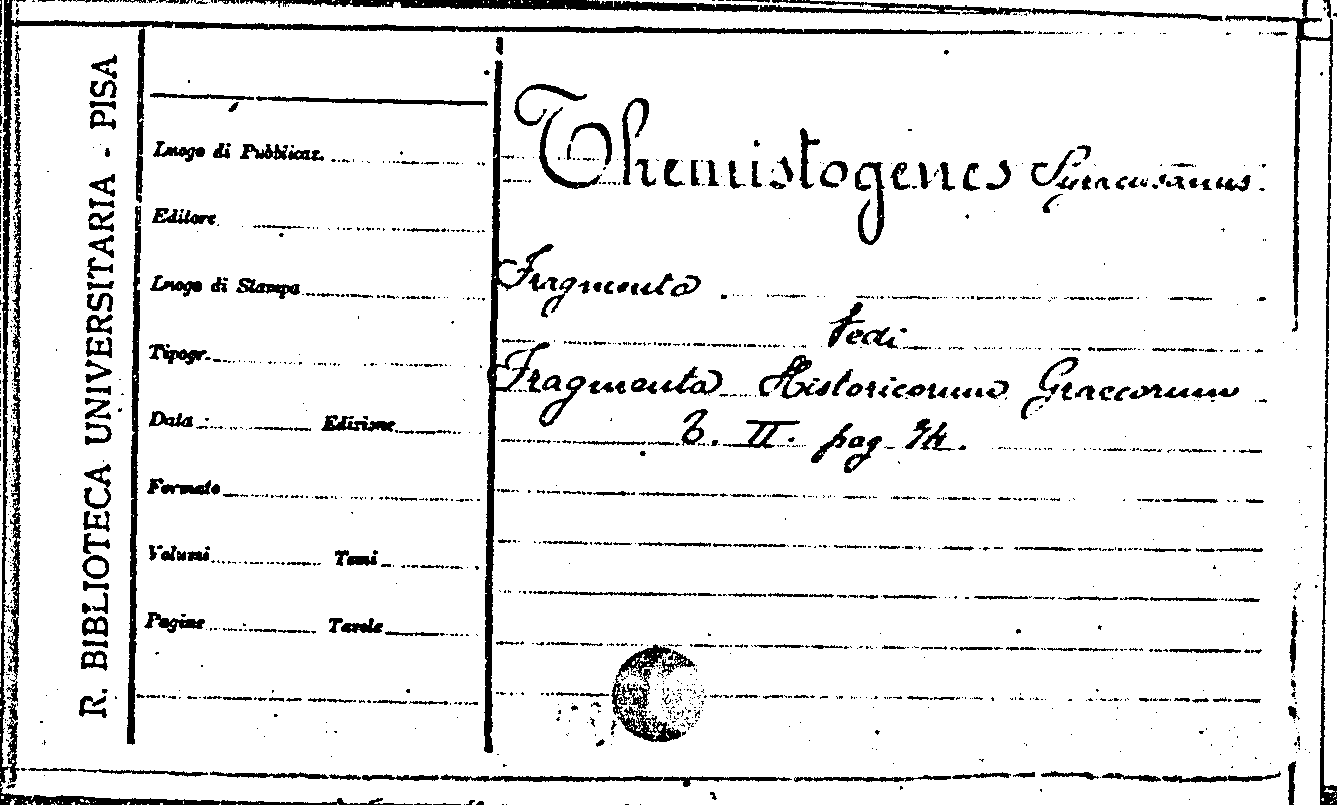 R. BIBLIOTECA UNIVERSITARIA - PISA
Luogo di Pubblicaz.
Editore
Luogo di Stampa
Tipogr.
Data Edizione
Formato
Volumi Tomi
Pagine Tavole
Themistogenes Syracusanus.
Fragmenta
Vedi
Fragmenta Historicorum Graecorum
T. II. pag 74.